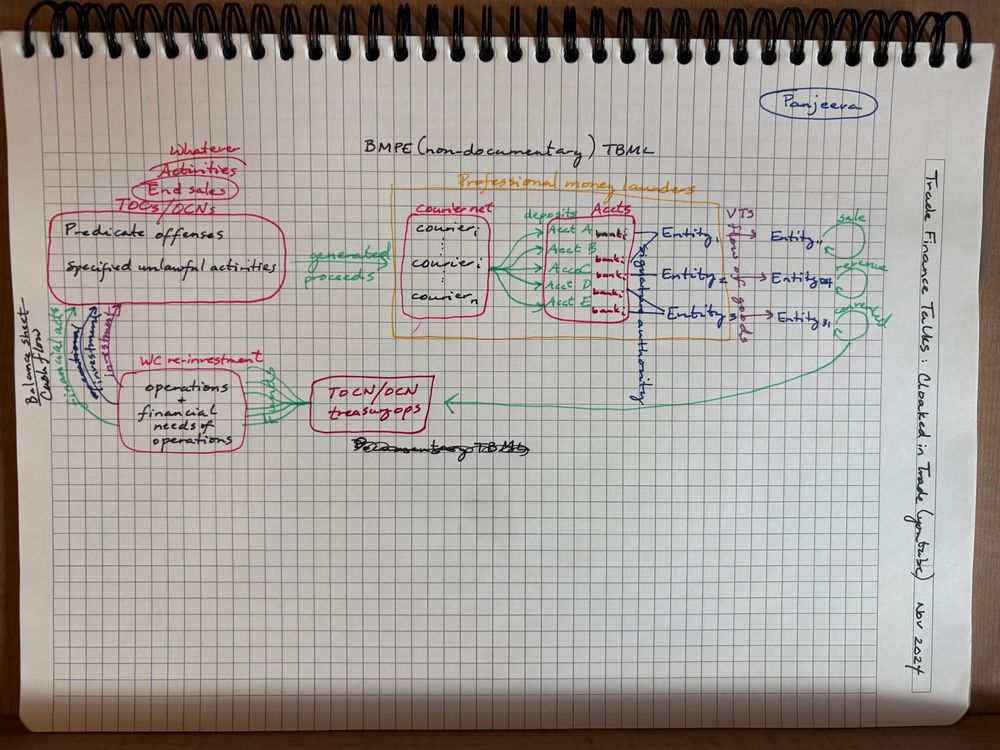 Panjeeva
BMPE (non-documentary) TBML
Whatever
Activities
End sales
TOCs/OCNs
Predicate offenses
Specified unlawful activities
generated
proceeds
Professional money launders
Courier net
courier i
courier i
courier n
deposits
Accts
Acct A bank i
Acct B bank i
Acct bank i
Acct D bank i
Acct E bank i
signature authority
Entity 1
Entity 2
Entity 3
VTS
flow of goods
Entity
Entity
Entity 31
sale
revenue
converted
Balance sheet
Cash flow
Financial acts
operational
investment
investment
WC re-investment
operations
+
financial
needs of
operations
Funds
TOCN/OCN
treasury ops
Documentary TBML
Trade Finance Talks: Cloaked in Trade (youtube) Nov 2024